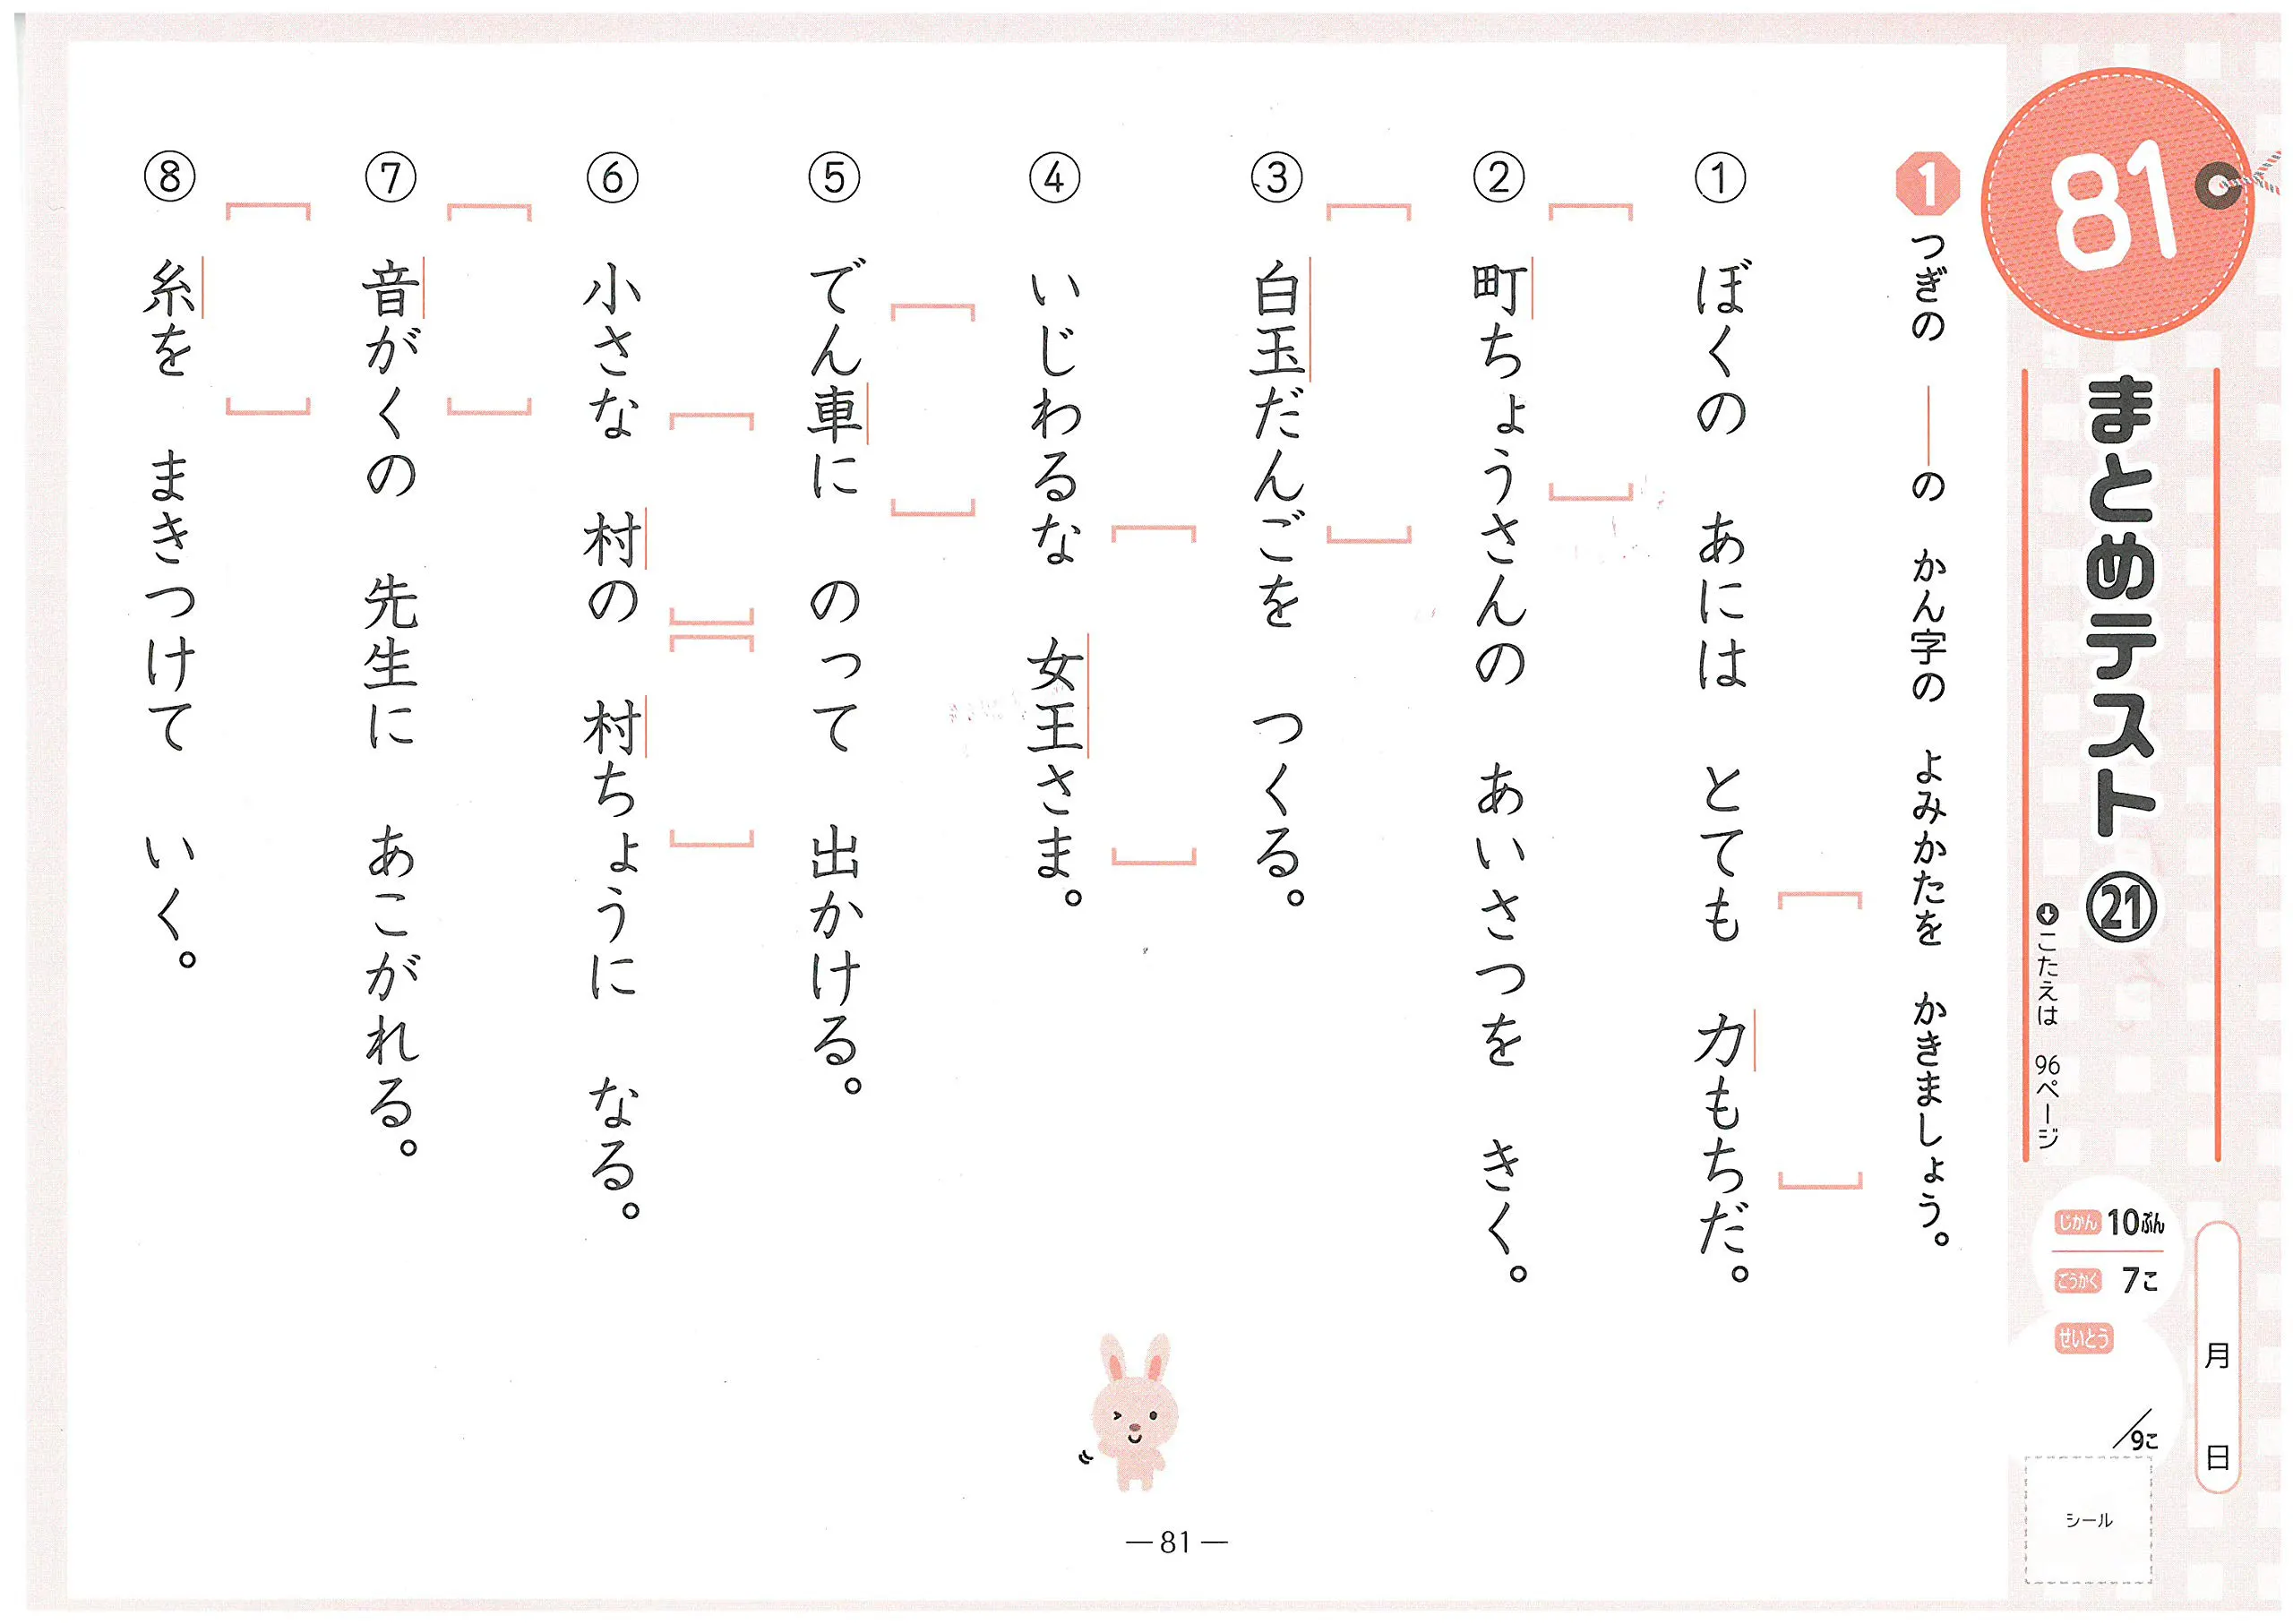 81
まとめテスト ㉑
こたえは 96ページ
月 日
じかん 10ぷん
ごうかく 7こ
せいとう
/9こ
シール
1 つぎの ―の かん字の よみかたを かきましょう。
① ぼくの あには とても 力もちだ。
② 町ちょうさんの あいさつを きく。
③ 白玉だんごを つくる。
④ いじわるな 女王さま。
⑤ でん車に のって 出かける。
⑥ 小さな 村の 村ちょうに なる。
⑦ 音がくの 先生に あこがれる。
⑧ 糸を まきつけて いく。
―81―